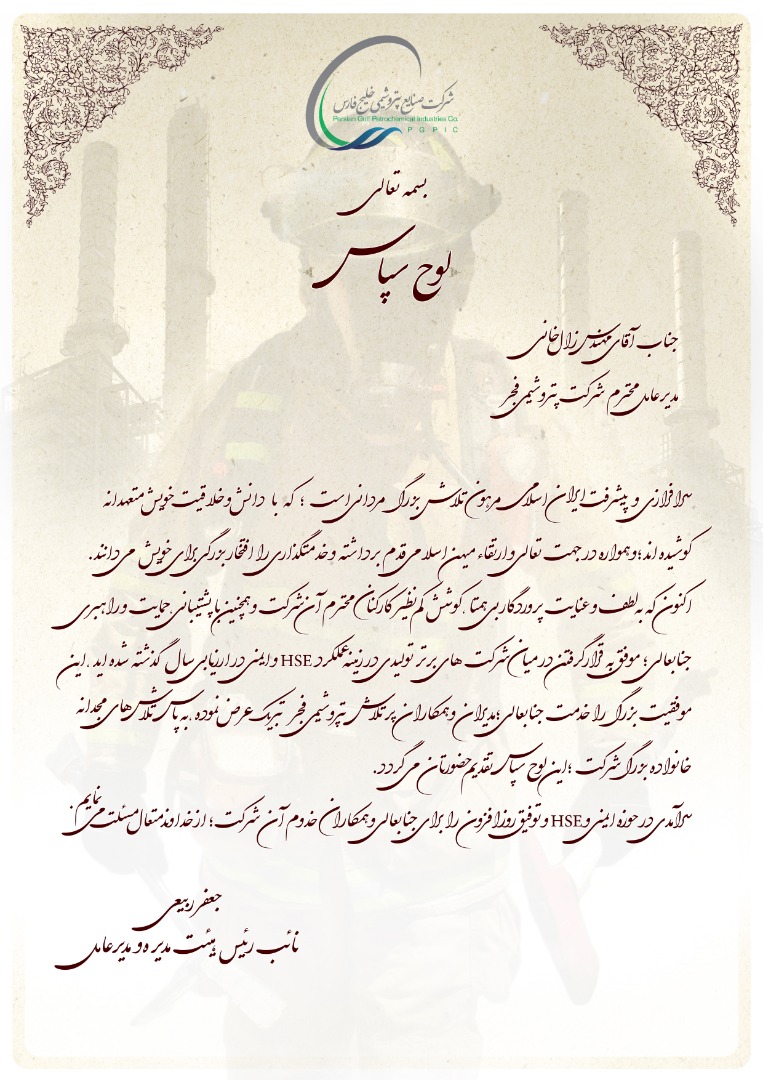 شرکت صنایع پتروشیمی خلیج فارس
Persian Gulf Petrochemical Industries Co.
PGPIC
بسمه تعالی
لوح سپاس
جناب آقای مهندس زال‌خانی
مدیرعامل محترم شرکت پتروشیمی فجر
سرافرازی و پیشرفت ایران اسلامی مرهون تلاش بزرگ مردانی است ؛ که با دانش و خلاقیت خویش متعهدانه
کوشیده اند؛ و همواره در جهت تعالی و ارتقاء میهن اسلامی قدم برداشته و خدمتگذاری را افتخار بزرگی برای خویش می دانند.
اکنون که به لطف و عنایت پروردگار بی همتا ،کوشش کم نظیر کارکنان محترم آن شرکت و همچنین با پشتیبانی حمایت و راهبری
جنابعالی؛ موفق به قرار گرفتن در میان شرکت های برتر تولیدی در زمینه عملکرد HSE و ایمنی در ارزیابی سال گذشته شده اید ،این
موفقیت بزرگ را خدمت جنابعالی؛ مدیران و همکاران پر تلاش پتروشیمی فجر تبریک عرض نموده ،به پاس تلاش های مجدانه
خانواده بزرگ شرکت ؛ این لوح سپاس تقدیم حضورتان می گردد.
سرآمدی در حوزه ایمنی و HSE و توفیق روزافزون را برای جنابعالی و همکاران خدوم آن شرکت ؛ از خداوند متعال مسئلت می نمایم.
جعفر ربیعی
نائب رئیس هیئت مدیره و مدیرعامل